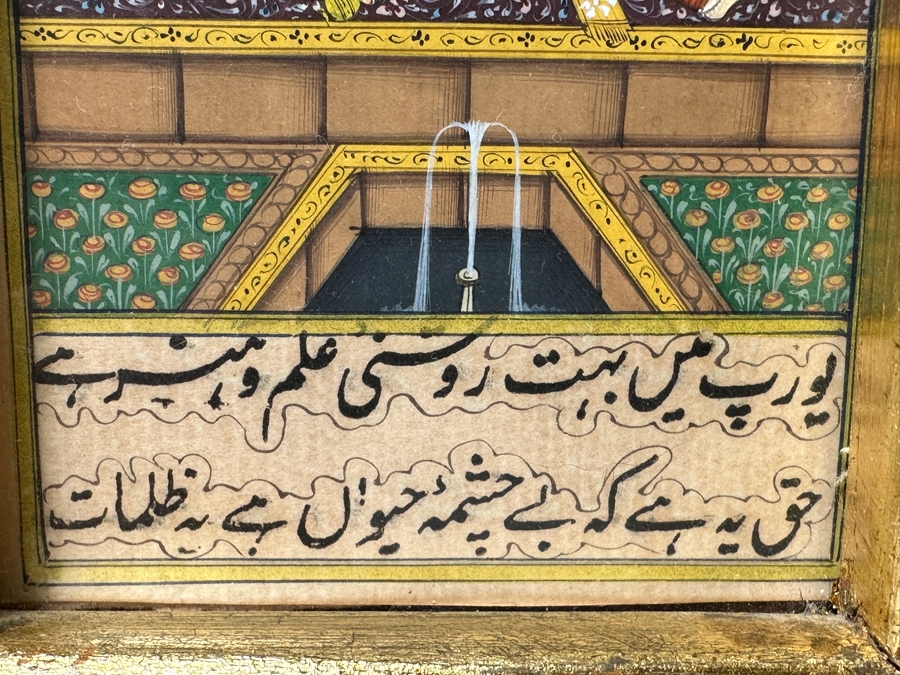 یورپ میں بہت روشنی علم و ہنر ہے
حق یہ ہے کہ بے چشمۂ حیواں ہے یہ ظلمات